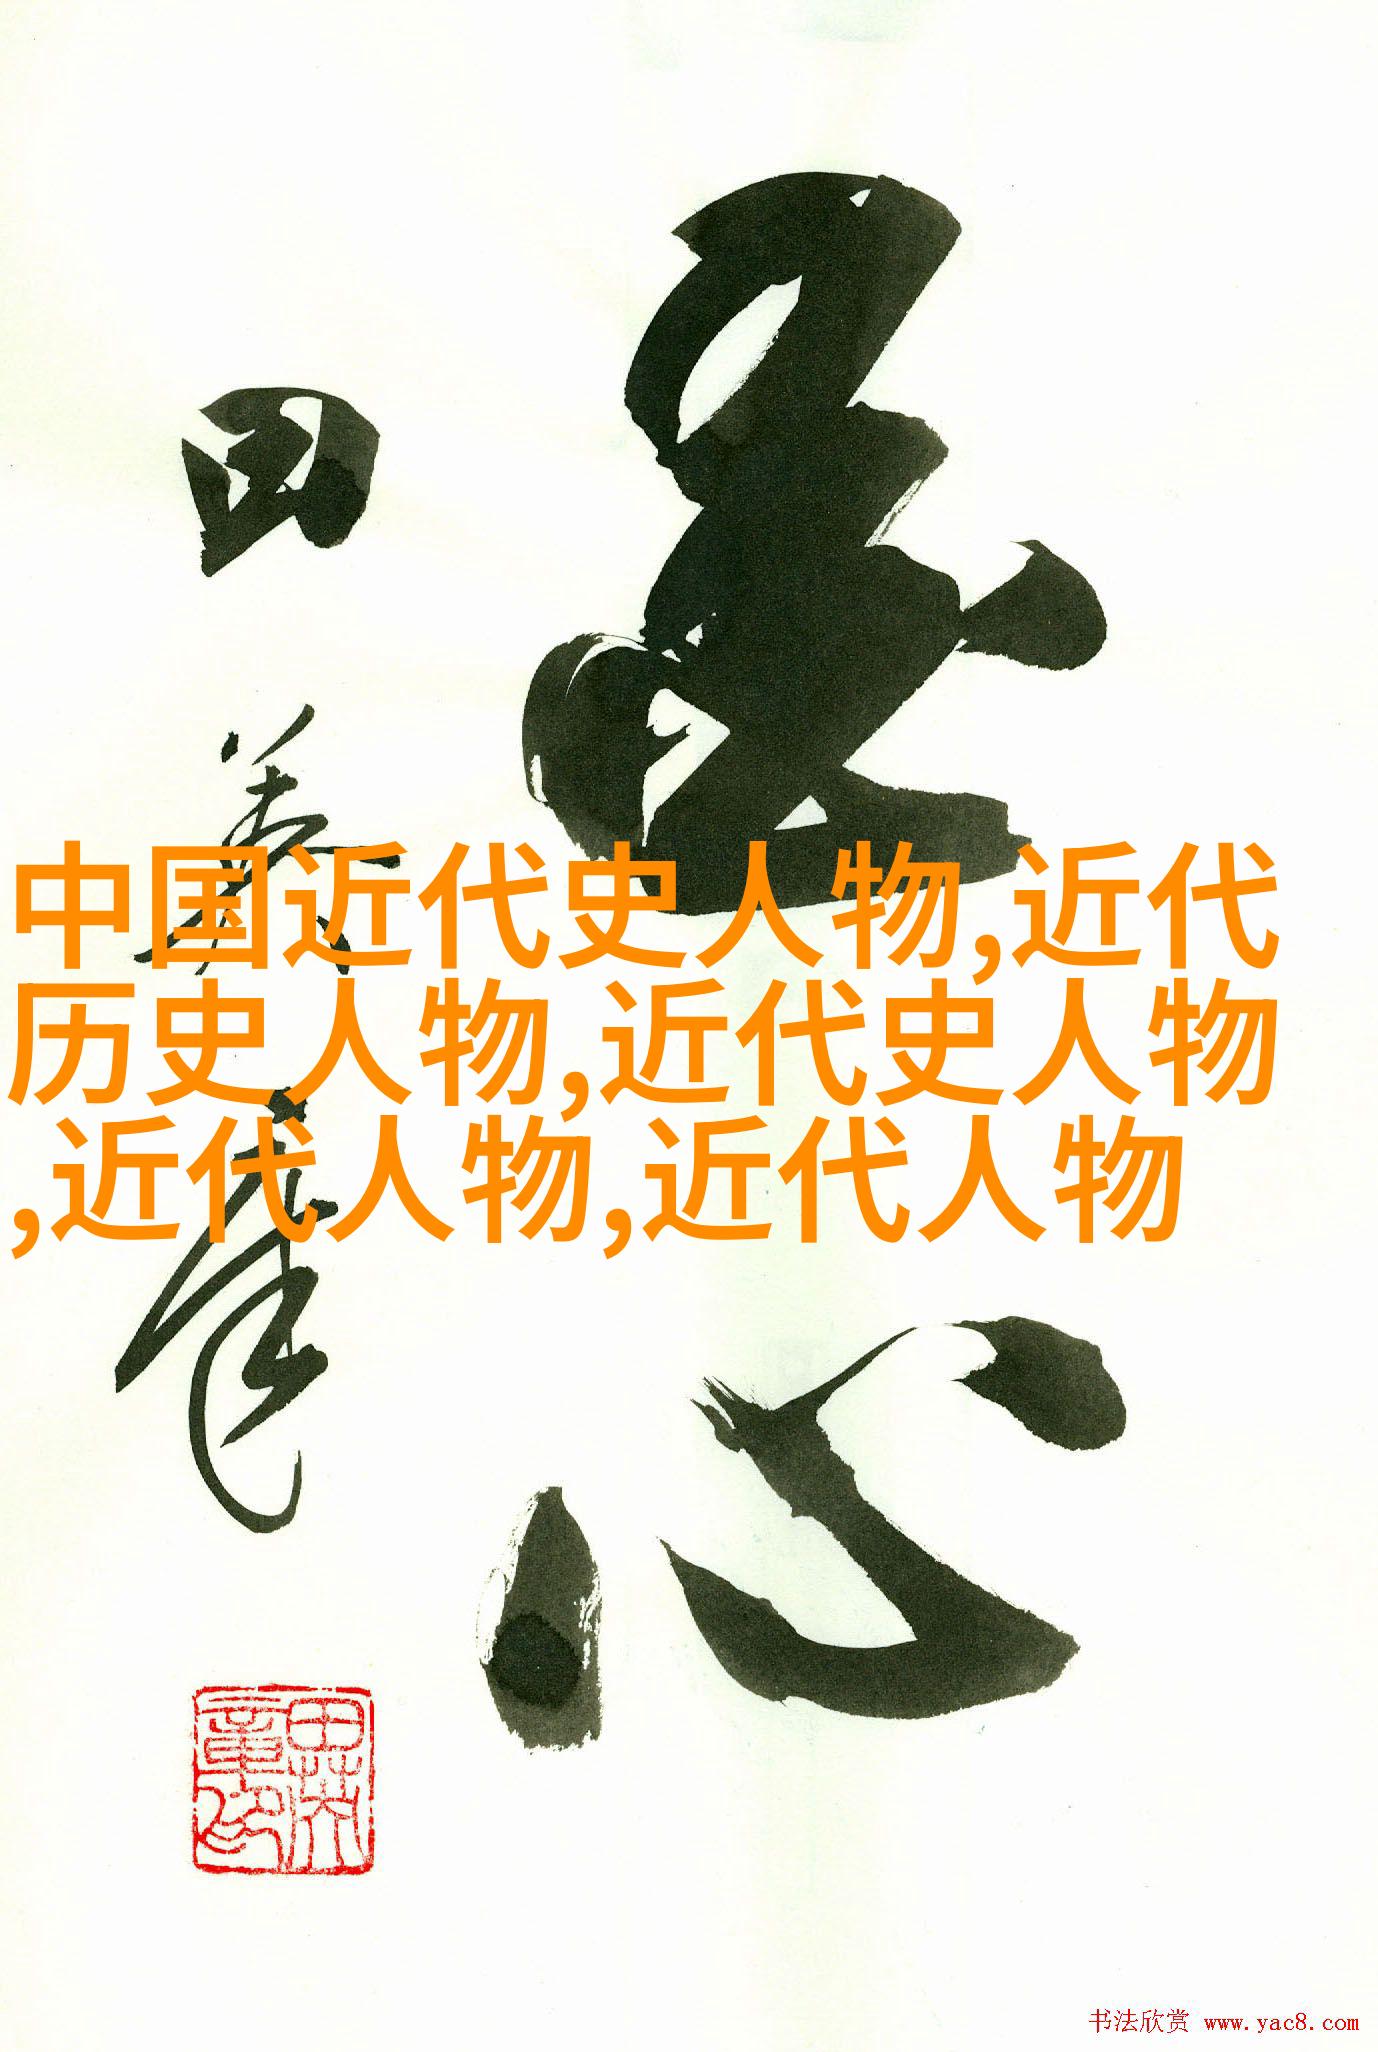 田英章
中国近代史人物,近代
历史人物,近代史人物
,近代人物,近代人物
心
田英章印
书法欣赏 www.yac8.com